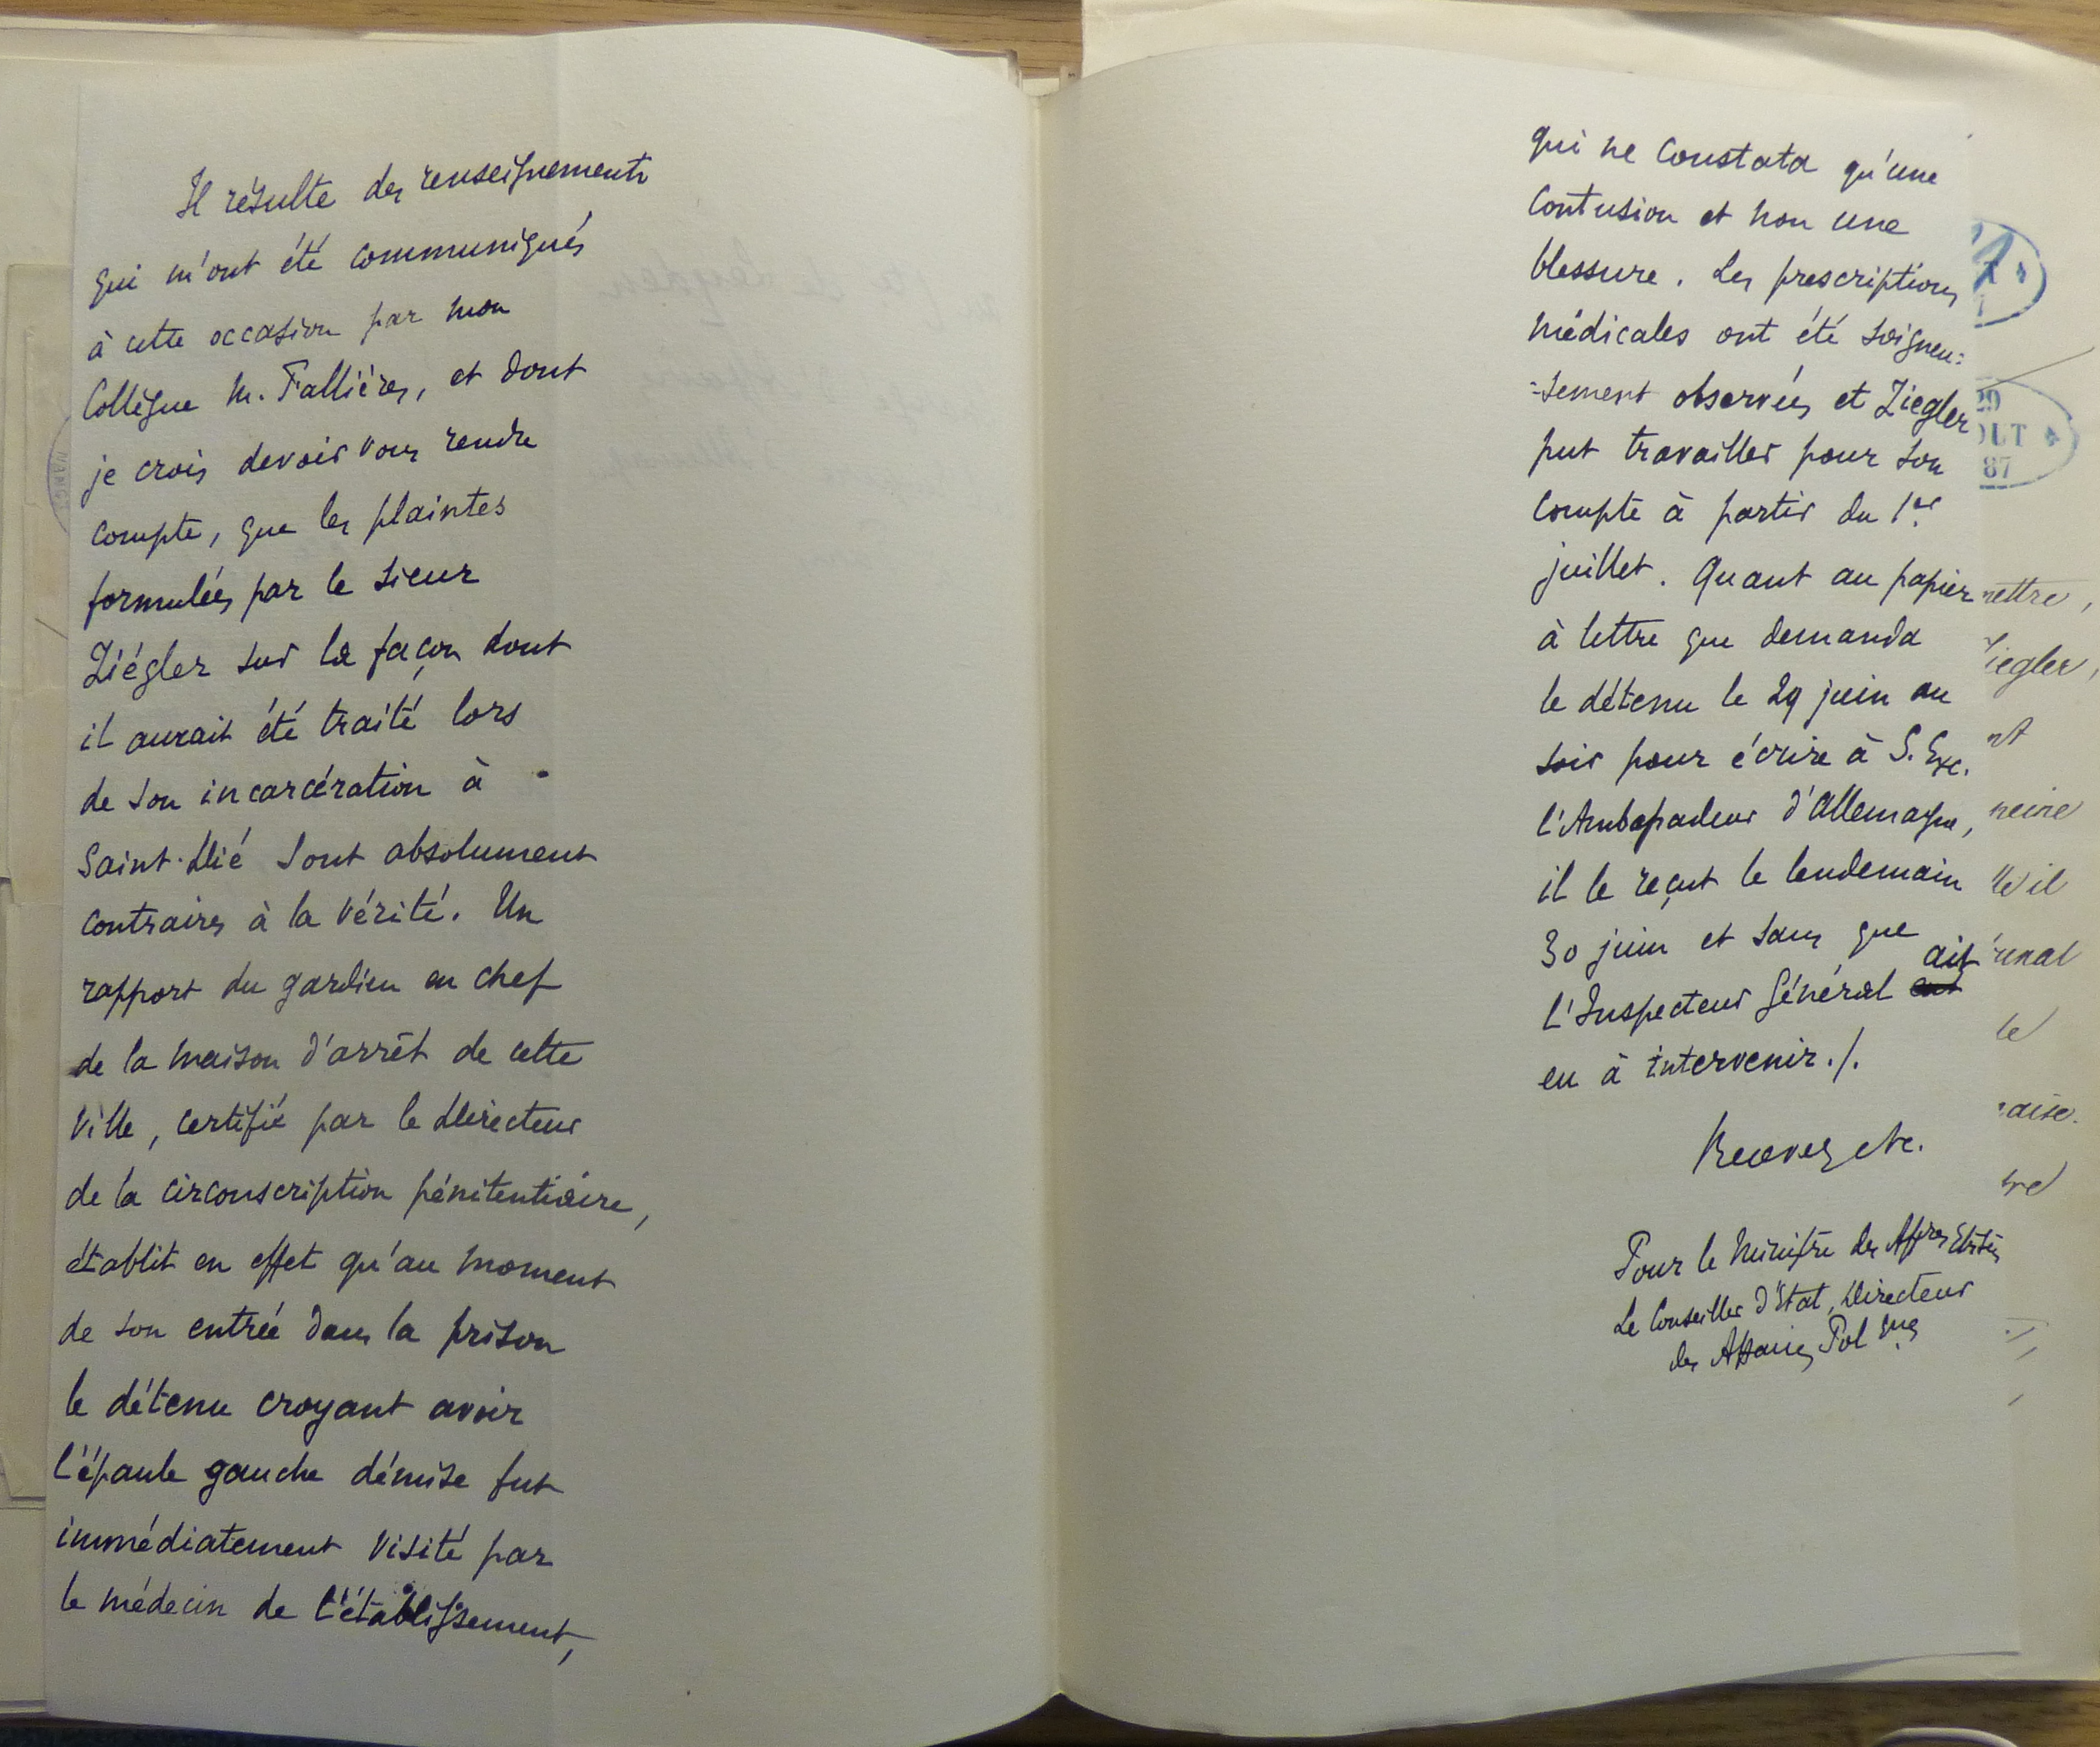 Il résulte des renseignements
qui m'ont été communiqués
à cette occasion par mon
Collègue M. Fallières, et dont
je crois devoir vous rendre
compte, que les plaintes
formulées par le sieur
Ziégler sur la façon dont
il aurait été traité lors
de son incarcération à
Saint-Dié sont absolument
contraires à la vérité. Un
rapport du gardien en chef
de la maison d'arrêt de cette
ville, certifié par le Directeur
de la circonscription pénitentiaire,
établit en effet qu'au moment
de son entrée dans la prison
le détenu croyant avoir
l'épaule gauche démise fut
immédiatement visité par
le médecin de l'établissement,
qui ne constata qu'une
contusion et non une
blessure. Les prescriptions
médicales ont été soigneu=
=sement observées et Ziegler
put travailler pour son
compte à partir du 1er
juillet. Quant au papier
à lettre que demanda
le détenu le 29 juin au
soir pour écrire à S. Exc.
l'Ambassadeur d'Allemagne,
il le reçut le lendemain
30 juin et sans que
l'Inspecteur Général ait
eu à intervenir./.
Recevez etc.
Pour le Ministre des Affres Etres
Le Conseiller d'Etat, Directeur
des Affaires Polques
NANCY
29
OUT
87
mettre,
Ziegler,
nt
peine
il
unal
le
aise.